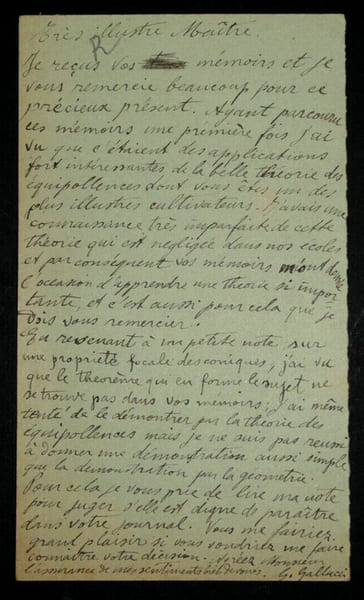 Très illustre Maître.
R
Je reçus vos mémoirs et je
vous remercie beaucoup pour ce
précieux présent. Ayant parcouru
ces mémoirs une première fois j'ai
vu que c'étaient des applications
fort intéressantes de la belle théorie des
équipollences dont vous êtes un des
plus illustres cultivateurs. J'avais une
connaissance très imparfaite de cette
théorie qui est negligée dans nos écoles
et par conséquent vos mémoirs m'ont donné
l'occasion d'apprendre une théorie si impor-
tante, et c'est aussi pour cela que je
dois vous remercier.
En revenant à un petite note sur
une propriété focale des coniques, j'ai vu
que le theorème qui en forme le sujet ne
se trouve pas dans vos mémoirs. J'ai même
tenté de le démontrer par la théorie des
équipollences mais je ne suis pas reussi
à donner une démonstration aussi simple
que la demonstration par la géometrie.
Pour cela je vous prie de lire ma note
pour juger s'elle est digne de paraître
dans votre journal. Vous me fairiez
grand plaisir si vous voudriez me faire
connaître votre décision. Agréez Monsieur
l'assurance de mes sentiments G. Gallucci